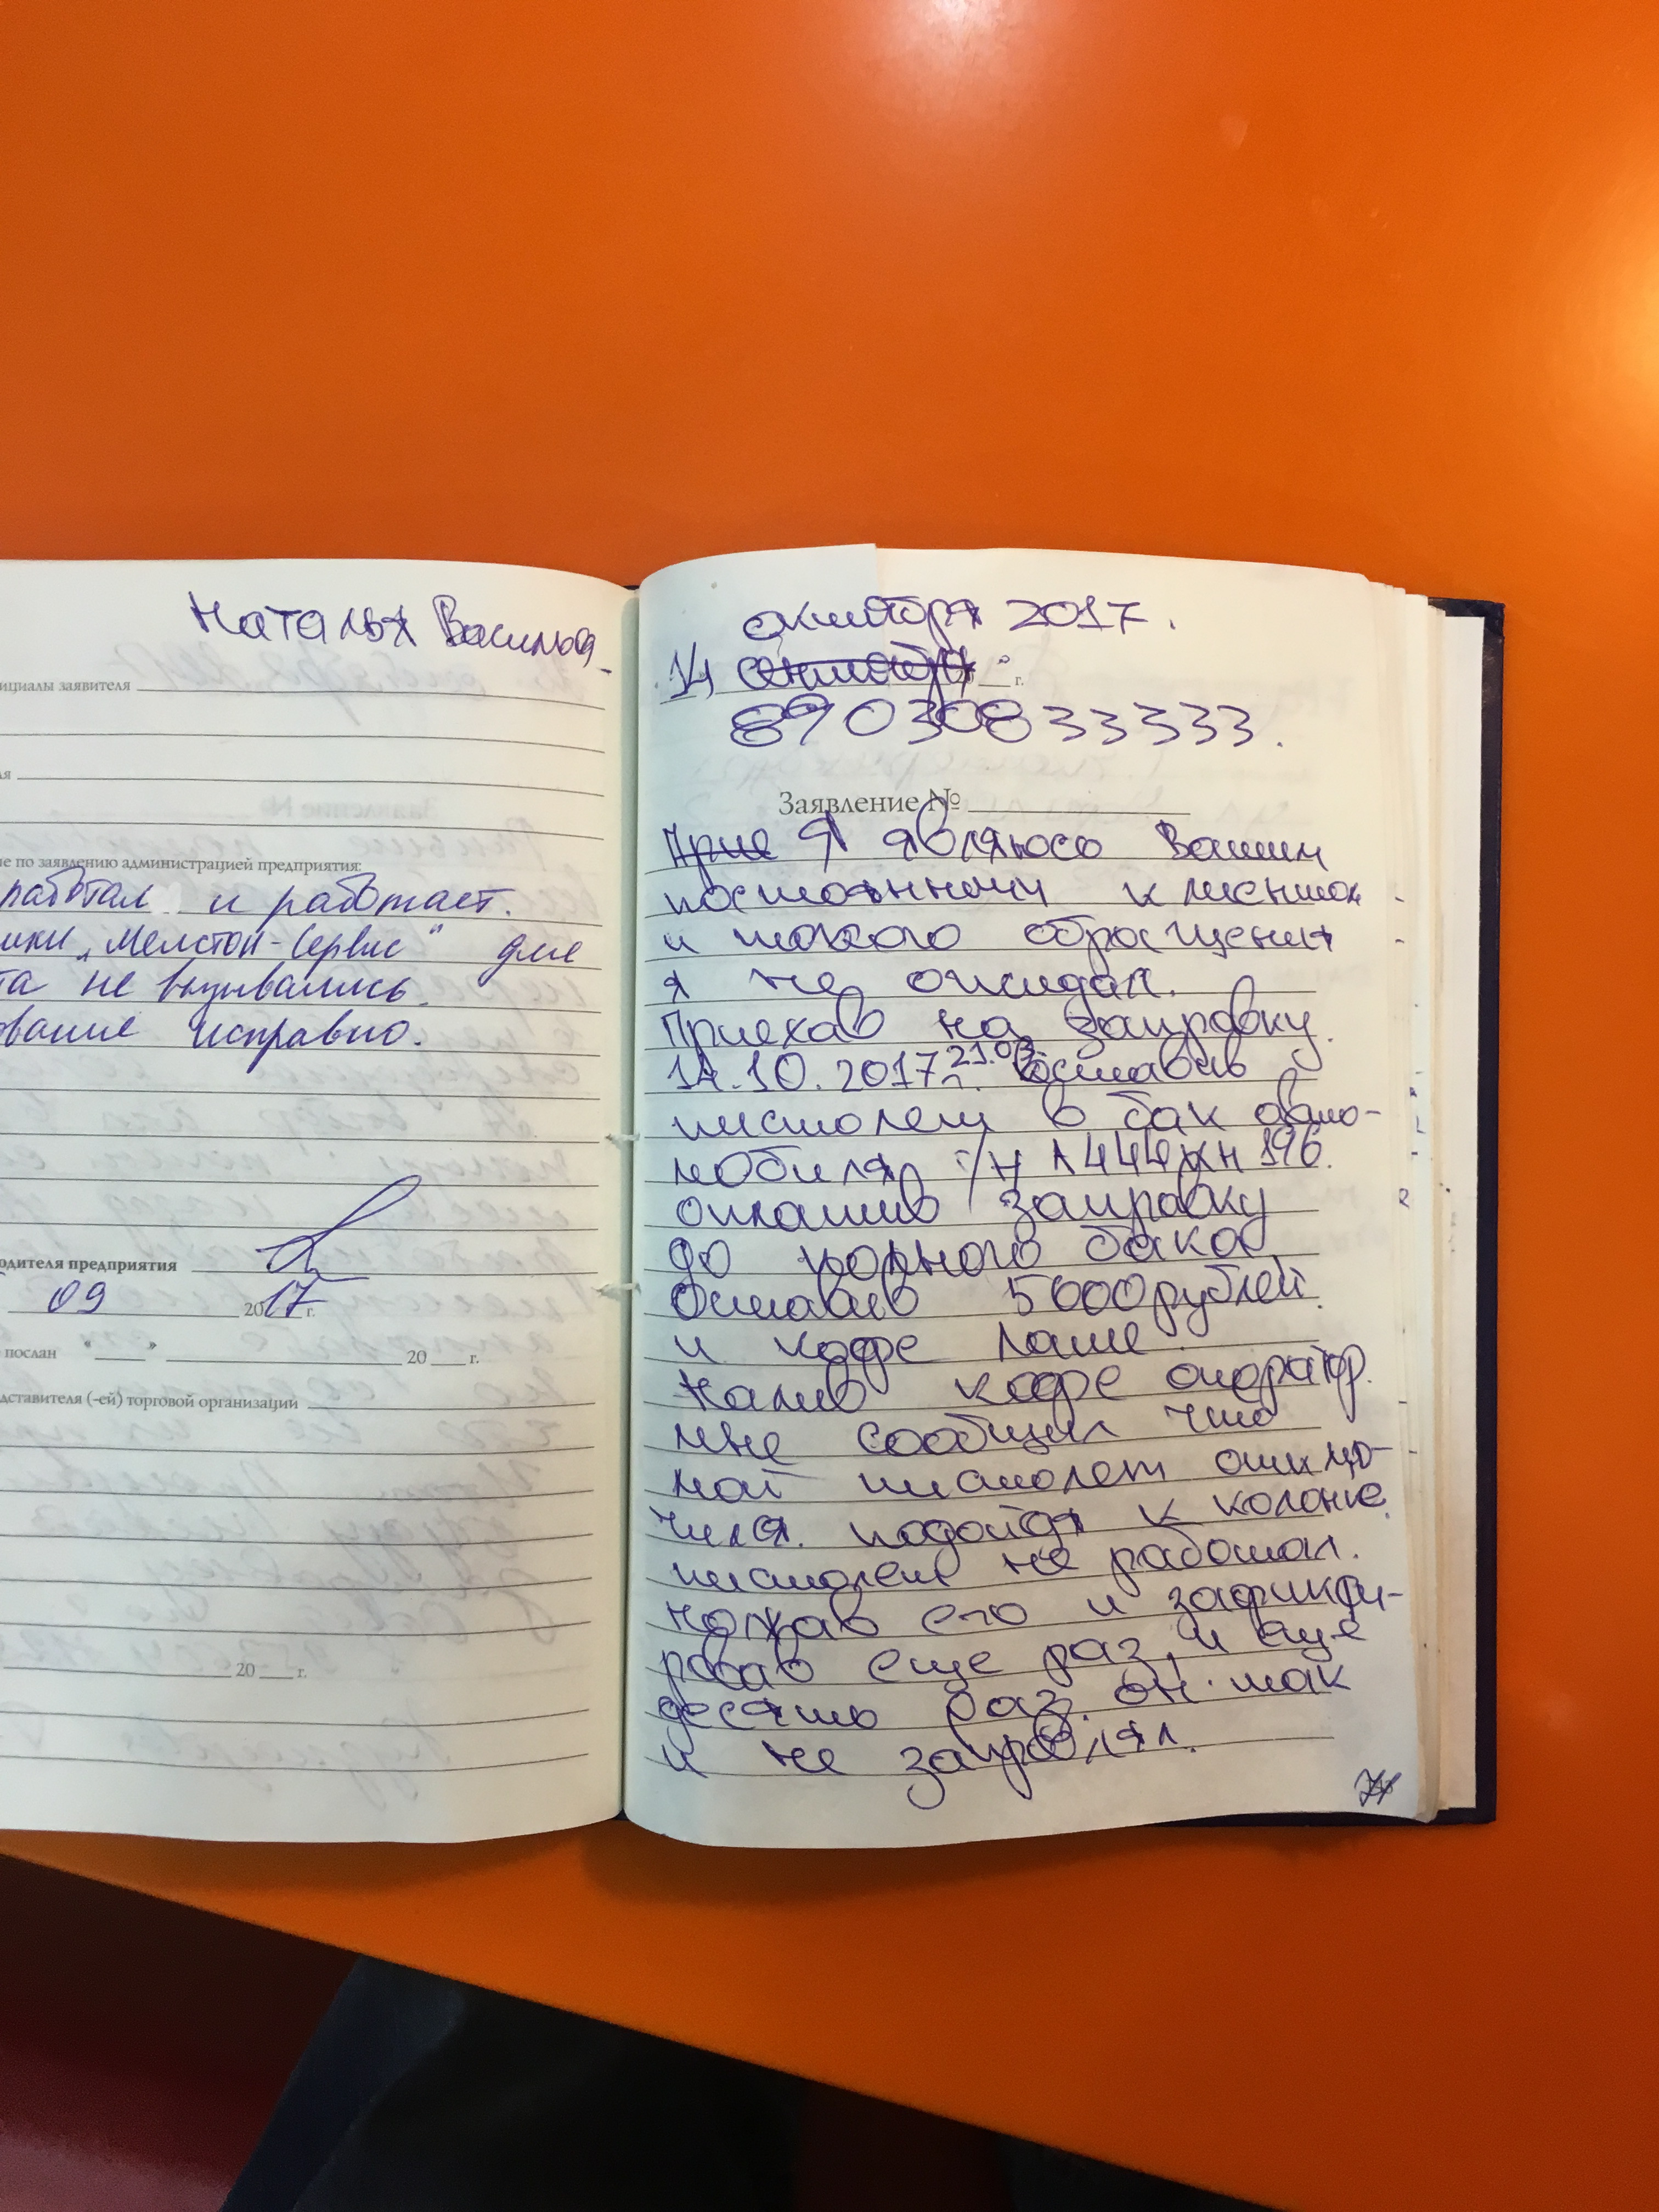 Наталья Василье-
ициалы заявителя
ля
ие по заявлению администрацией предприятия:
работал и работает.
ики „Мелстон-Сервис" для
та не вызывались.
ование исправно.
одителя предприятия
09 2017 г.
послан " " 20 г.
дставителя (-ей) торговой организаций
20 г.
октября 2017.
14 сентября г.
89030833333.
Заявление №
Прие Я являюсь Вашим
постоянному клиентом
и такого обращения
я не ожидал.
Приехав на заправку.
14.10.2017г. 21.03. Вставив
пистолет в бак авто-
мобиля г/н А444КН 196.
оплатив заправку
до полного бака
Оставив 5000рублей.
и кофе латте.
Налив кофе оператор.
мне сообщил что
мой пистолет отклю-
чился. подойдя к колонке.
пистолет не работал.
нажав его и зафикси-
ровав еще раз, и еще
десять раз. он так
и не заправлял.